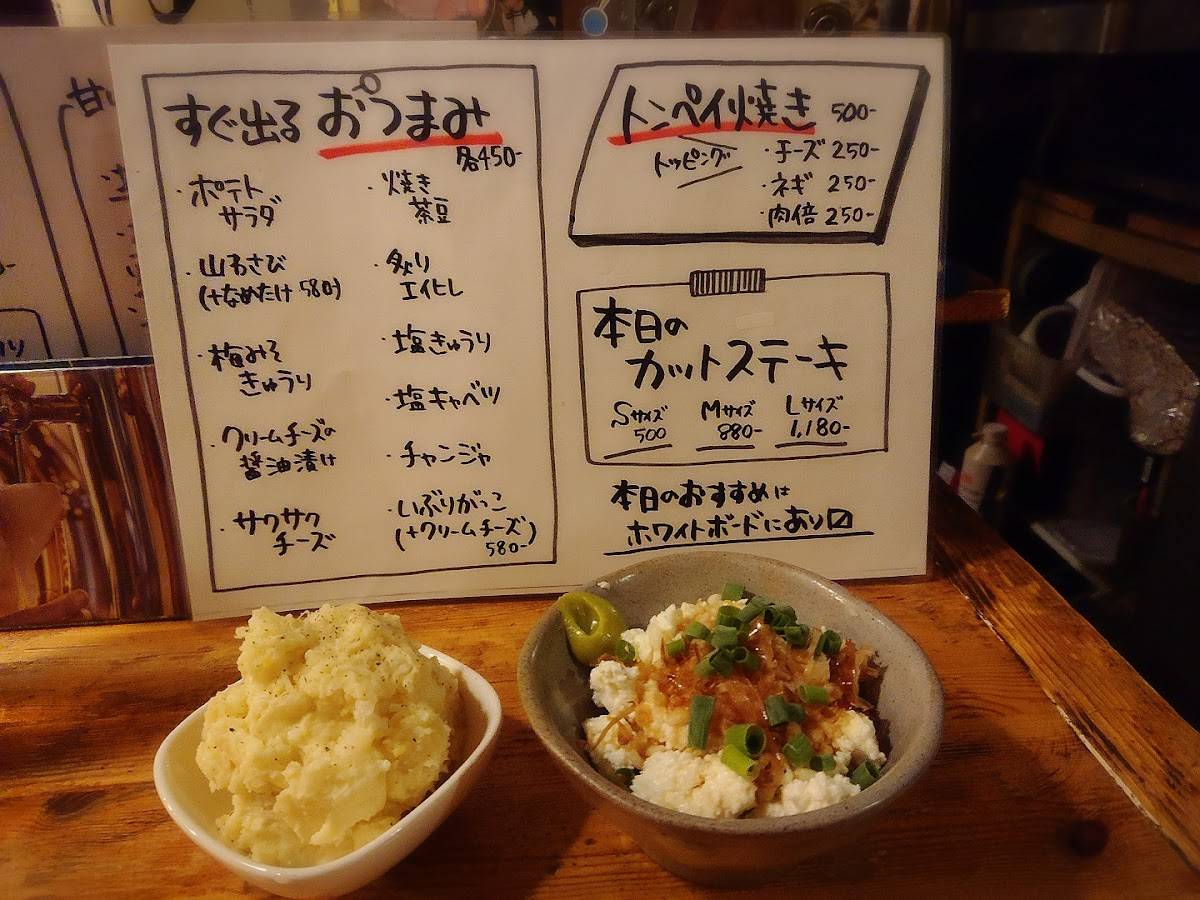 すぐ出る おつまみ
各450-
・ポテト
サラダ
・山わさび
(+なめたけ 580)
・梅みそ
きゅうり
・クリームチーズの
醤油漬け
・サクサク
チーズ
・焼き
茶豆
・炙り
エイヒレ
・塩きゅうり
・塩キャベツ
・チャンジャ
・いぶりがっこ
(+クリームチーズ)
580-
トンペイ焼き 500-
トッピング
・チーズ 250-
・ネギ 250-
・肉倍 250-
本日の
カットステーキ
Sサイズ
500
Mサイズ
880-
Lサイズ
1,180-
本日のおすすめは
ホワイトボードにあり〼
甘